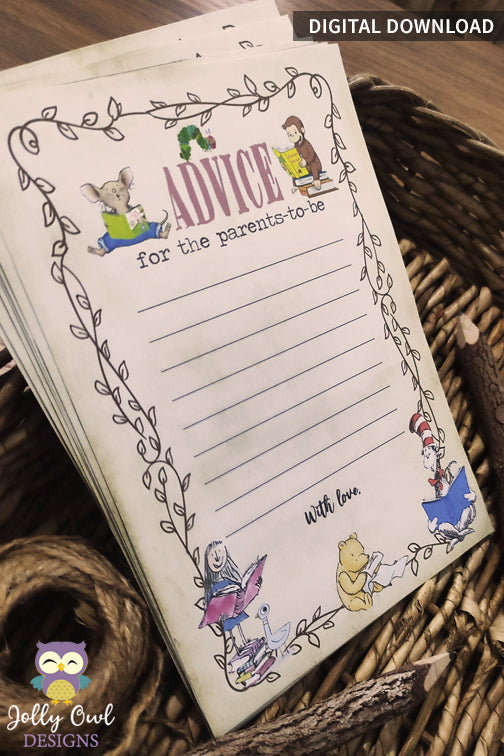 DIGITAL DOWNLOAD
ADVICE
for the parents-to-be
With love,
Jolly Owl
DESIGNS